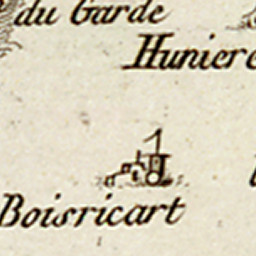 du Garde
Hunier
Boisricart